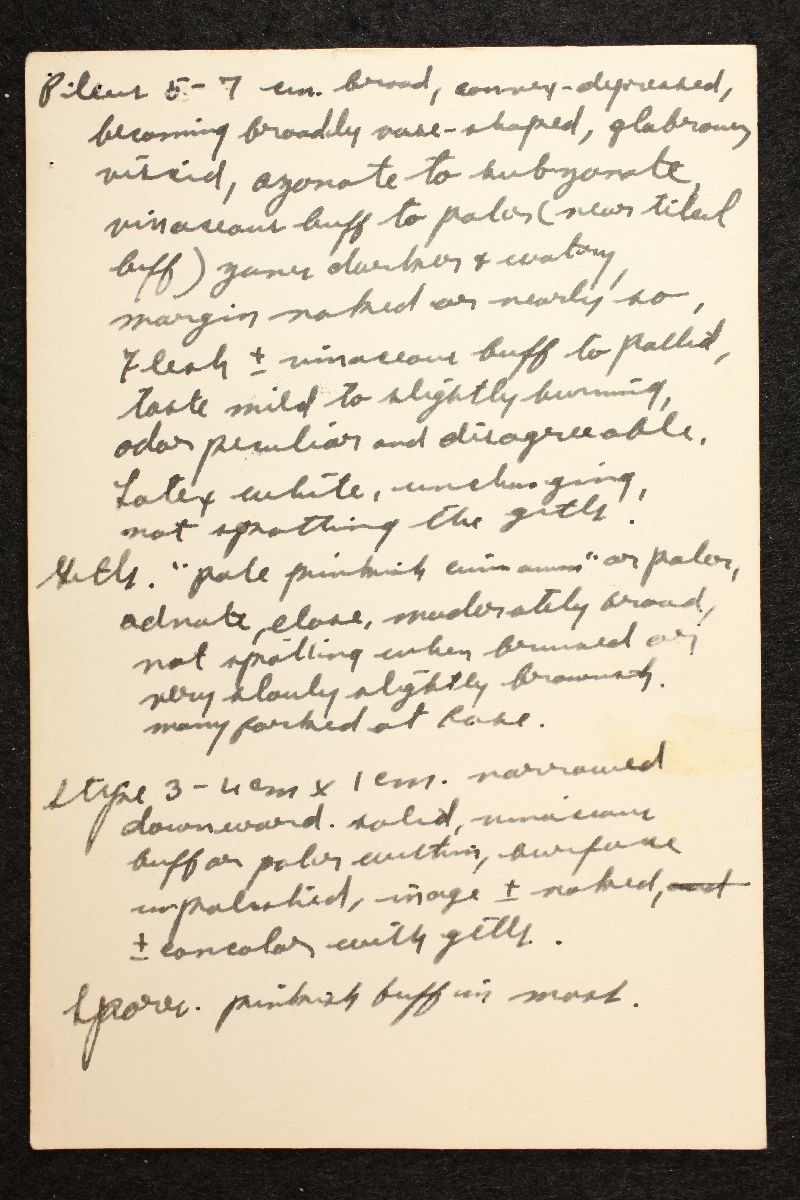 Pileus 5-7 cm. broad, convex-depressed,
becoming broadly vase-shaped, glabrous,
viscid, azonate to subzonate,
vinaceous buff to paler (near tilleul
buff) zones darker & watery,
margin naked or nearly so,
Flesh ± vinaceous buff to pallid,
taste mild to slightly burning,
odor peculiar and disagreeable.
Latex white, unchanging,
not spotting the gills.
Gills. "pale pinkish cinnamon" or paler,
adnate, close, moderately broad,
not spotting when bruised or
very slowly slightly brownish.
many forked at base.
Stipe 3-4 cm x 1 cm. narrowed
downward. solid, vinaceous
buff or paler within, surface
unpolished, ± naked,
± concolor with gills.
Spores. pinkish buff in mass.